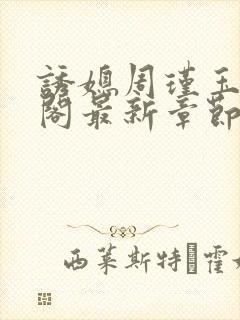 誘媳周瑾玉
閣最新章節
西莱斯特 霍